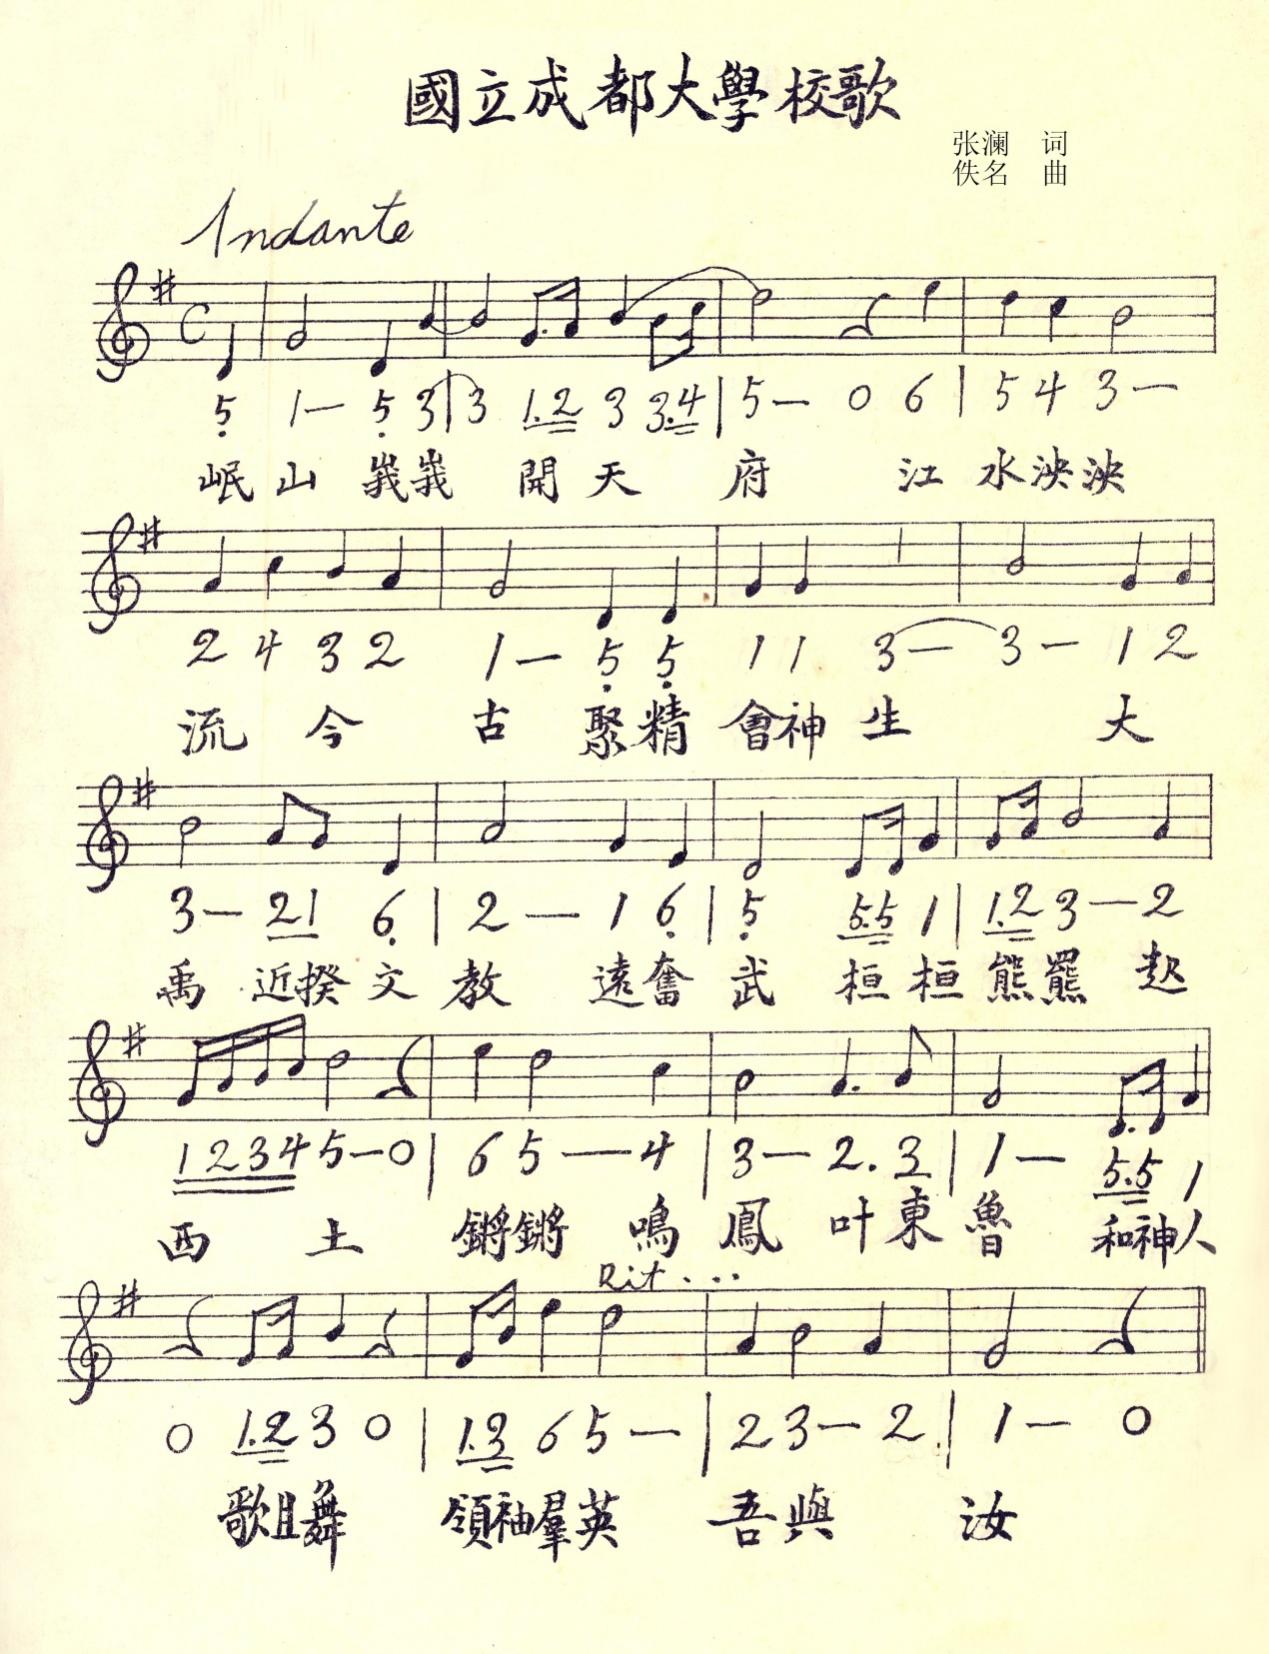 國立成都大學校歌
张澜 词
佚名 曲
Andante
5̣ 1— 5̣ 3 | 3 1.2 3 3.4 | 5— 0 6 | 5 4 3—
岷山峩峩開天府 江水泱泱
2 4 3 2 1— 5̣ 5̣ 1 1 3— 3— 1 2
流今古聚精會神生大
3— 21 6̣ | 2— 1 6̣ | 5̣ 5.5 1 | 1.2 3— 2
禹近揆文教遠奮武桓桓熊羆起
1234 5—0 | 6 5—4 | 3— 2. 3 | 1— 5.5 1
西土鏘鏘鳴鳳叶東魯和神人
Rit...
0 1.2 3 0 | 1.3 6 5— | 2 3— 2 | 1— 0
歌且舞領袖羣英吾與汝